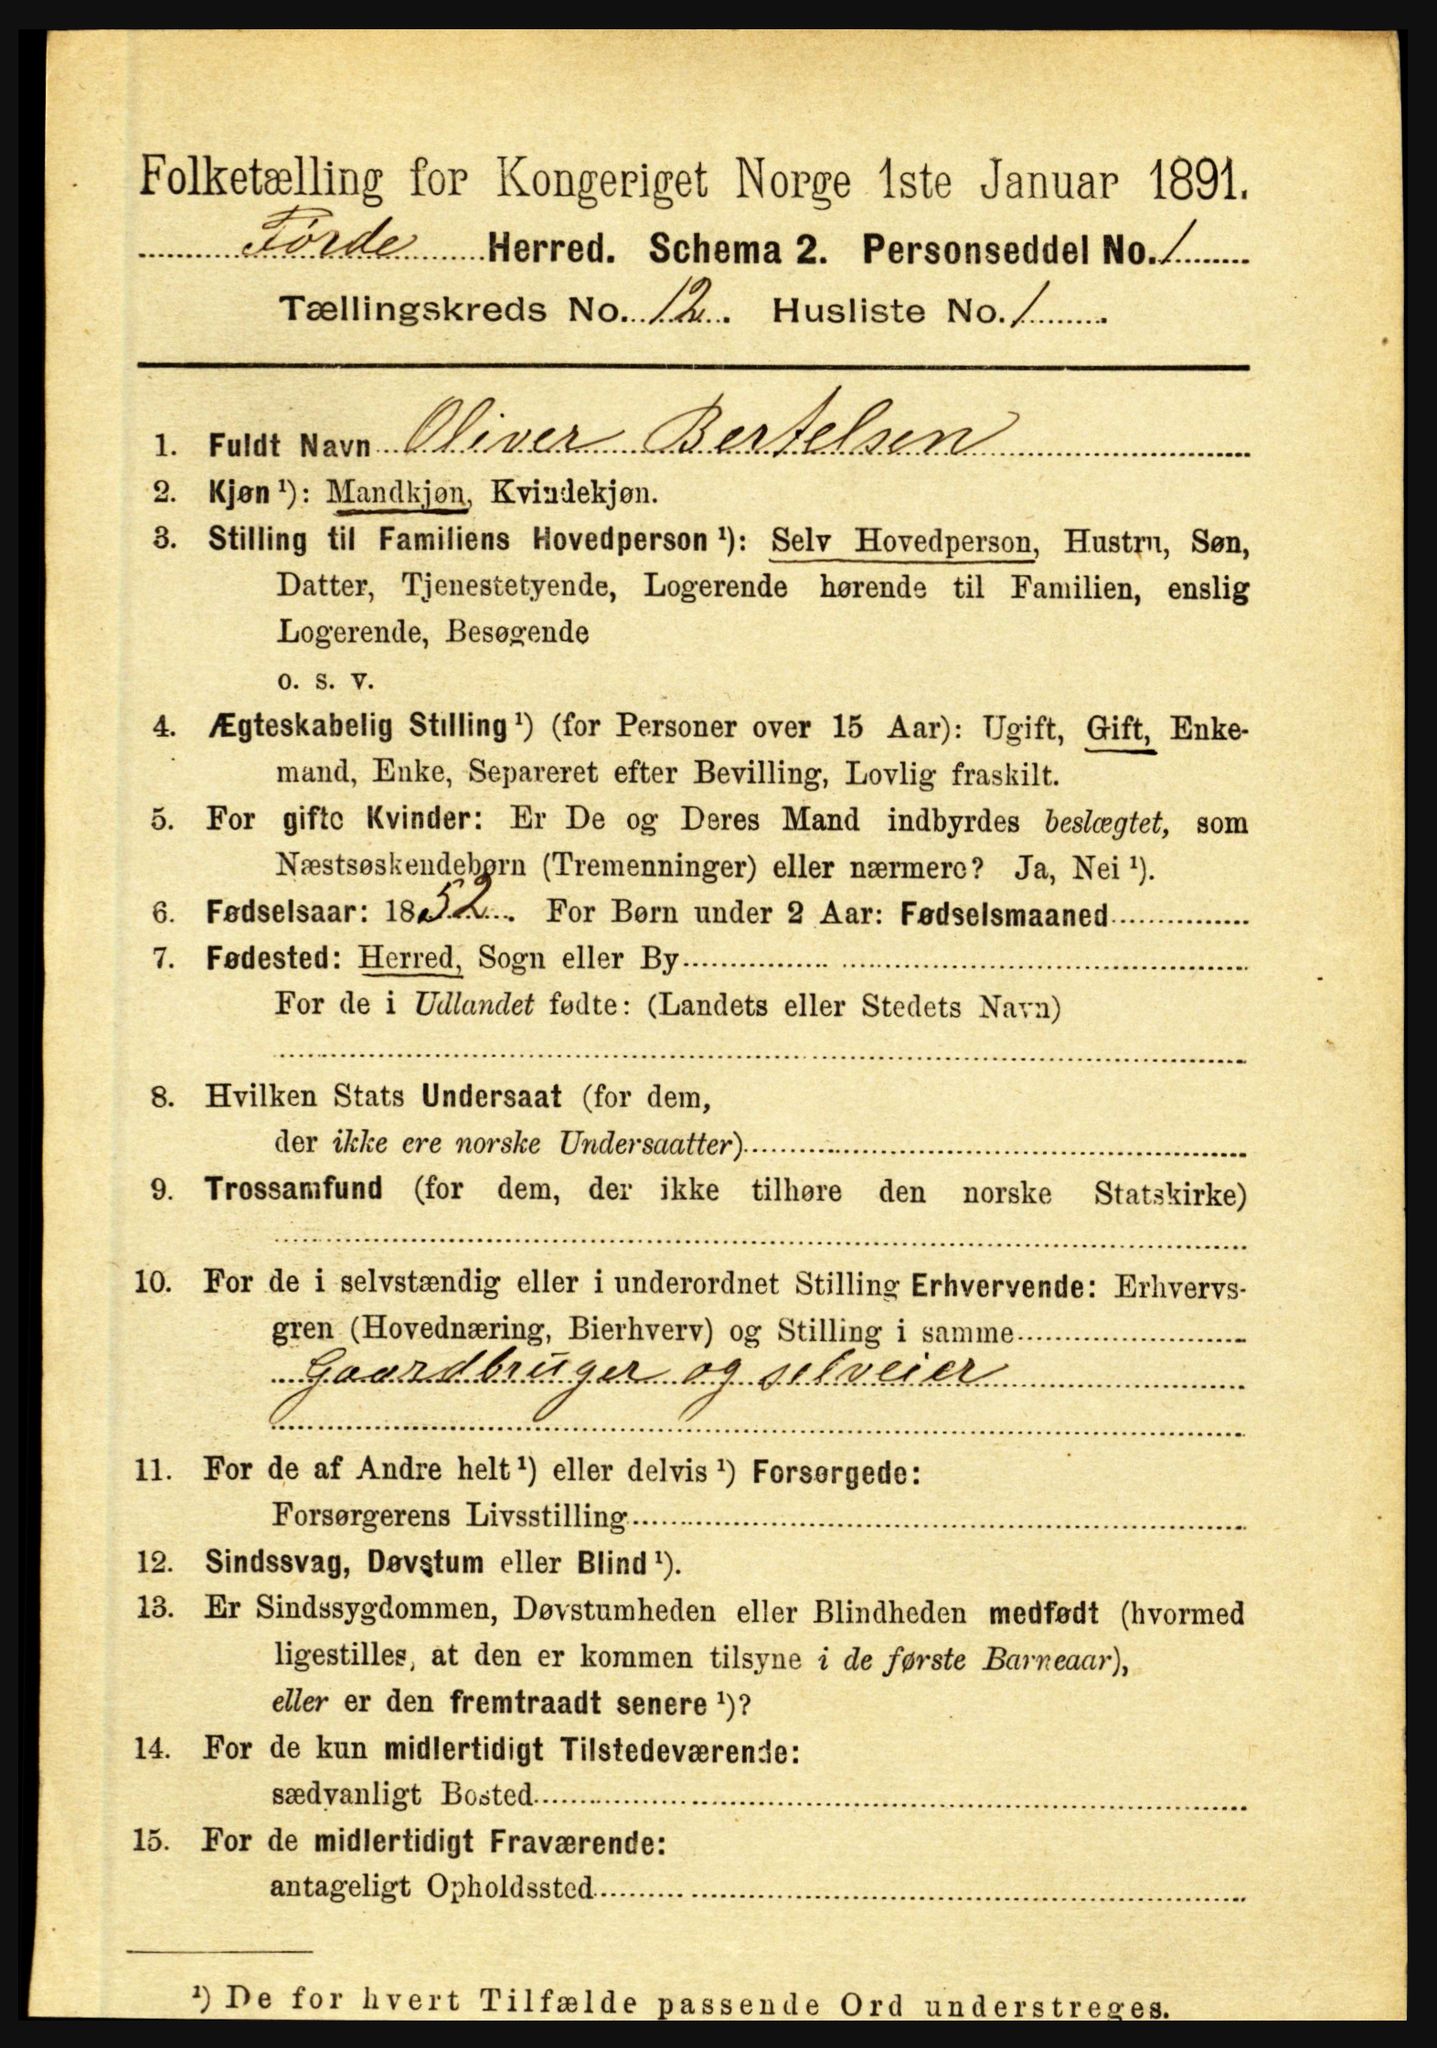 Folketælling for Kongeriget Norge 1ste Januar 1891.
Førde Herred. Schema 2. Personseddel No. 1
Tællingskreds No. 12. Husliste No. 1
1. Fuldt Navn Oliver Bertelsen
2. Kjøn ¹): Mandkjøn, Kvindekjøn.
3. Stilling til Familiens Hovedperson ¹): Selv Hovedperson, Hustru, Søn,
Datter, Tjenestetyende, Logerende hørende til Familien, enslig
Logerende, Besøgende
o. s. v.
4. Ægteskabelig Stilling ¹) (for Personer over 15 Aar): Ugift, Gift, Enke-
mand, Enke, Separeret efter Bevilling, Lovlig fraskilt.
5. For gifte Kvinder: Er De og Deres Mand indbyrdes beslægtet, som
Næstsøskendebørn (Tremenninger) eller nærmere? Ja, Nei ¹).
6. Fødselsaar: 1852. For Børn under 2 Aar: Fødselsmaaned
7. Fødested: Herred, Sogn eller By
For de i Udlandet fødte: (Landets eller Stedets Navn)
8. Hvilken Stats Undersaat (for dem,
der ikke ere norske Undersaatter)
9. Trossamfund (for dem, der ikke tilhøre den norske Statskirke)
10. For de i selvstændig eller i underordnet Stilling Erhvervende: Erhvervs-
gren (Hovednæring, Bierhverv) og Stilling i samme
Gaardbruger og selveier
11. For de af Andre helt ¹) eller delvis ¹) Forsørgede:
Forsørgerens Livsstilling
12. Sindssvag, Døvstum eller Blind ¹).
13. Er Sindssygdommen, Døvstumheden eller Blindheden medfødt (hvormed
ligestilles, at den er kommen tilsyne i de første Barneaar),
eller er den fremtraadt senere ¹)?
14. For de kun midlertidigt Tilstedeværende:
sædvanligt Bosted
15. For de midlertidigt Fraværende:
antageligt Opholdssted
¹) De for hvert Tilfælde passende Ord understreges.